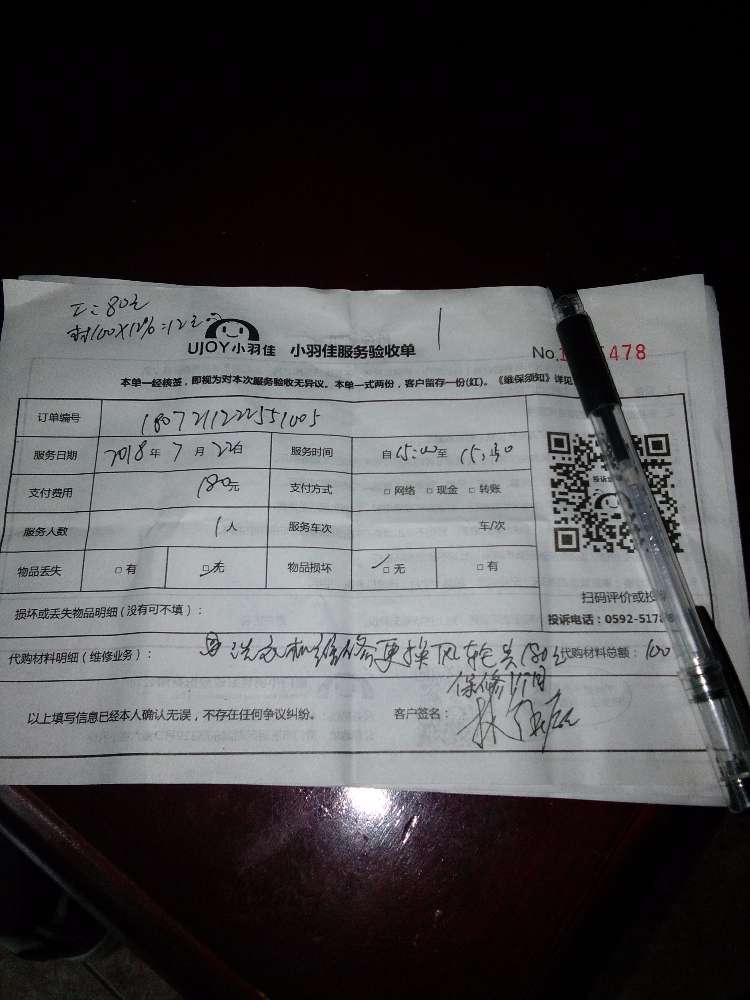 工:80元
材100X12%=12元
UJOY小羽佳 小羽佳服务验收单
No. 478
本单一经核签,即视为对本次服务验收无异议。本单一式两份,客户留存一份(红)。《维保须知》详见
订单编号 180721122551005
服务日期 2018年7月22日 服务时间 自15:00至15:30
支付费用 180元 支付方式 □网络 □现金 □转账
服务人数 1人 服务车次 车/次
物品丢失 □有 □无 物品损坏 □无 □有
投诉
扫码评价或投
损坏或丢失物品明细(没有可不填):
投诉电话:0592-517
代购材料明细(维修业务): 洗衣机维修更换风轮共180元 代购材料总额:100
保修
以上填写信息已经本人确认无误,不存在任何争议纠纷。 客户签名:林